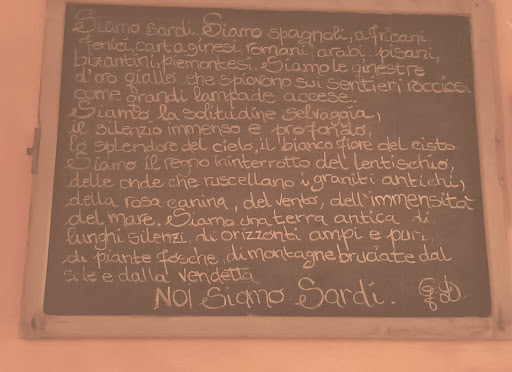 Siamo sardi. Siamo spagnoli, africani,
fenici, cartaginesi, romani, arabi, pisani,
bizantini, piemontesi. Siamo le ginestre
d'oro giallo che spiovono sui sentieri rocciosi
come grandi lampade accese.
Siamo la solitudine selvaggia,
il silenzio immenso e profondo,
lo splendore del cielo, il bianco fiore del cisto.
Siamo il regno ininterrotto del lentischio,
delle onde che ruscellano i graniti antichi,
della rosa canina, del vento, dell'immensità
del mare. Siamo una terra antica di
lunghi silenzi, di orizzonti ampi e puri,
di piante fosche, di montagne bruciate dal
sole e dalla vendetta
NOI Siamo Sardi.